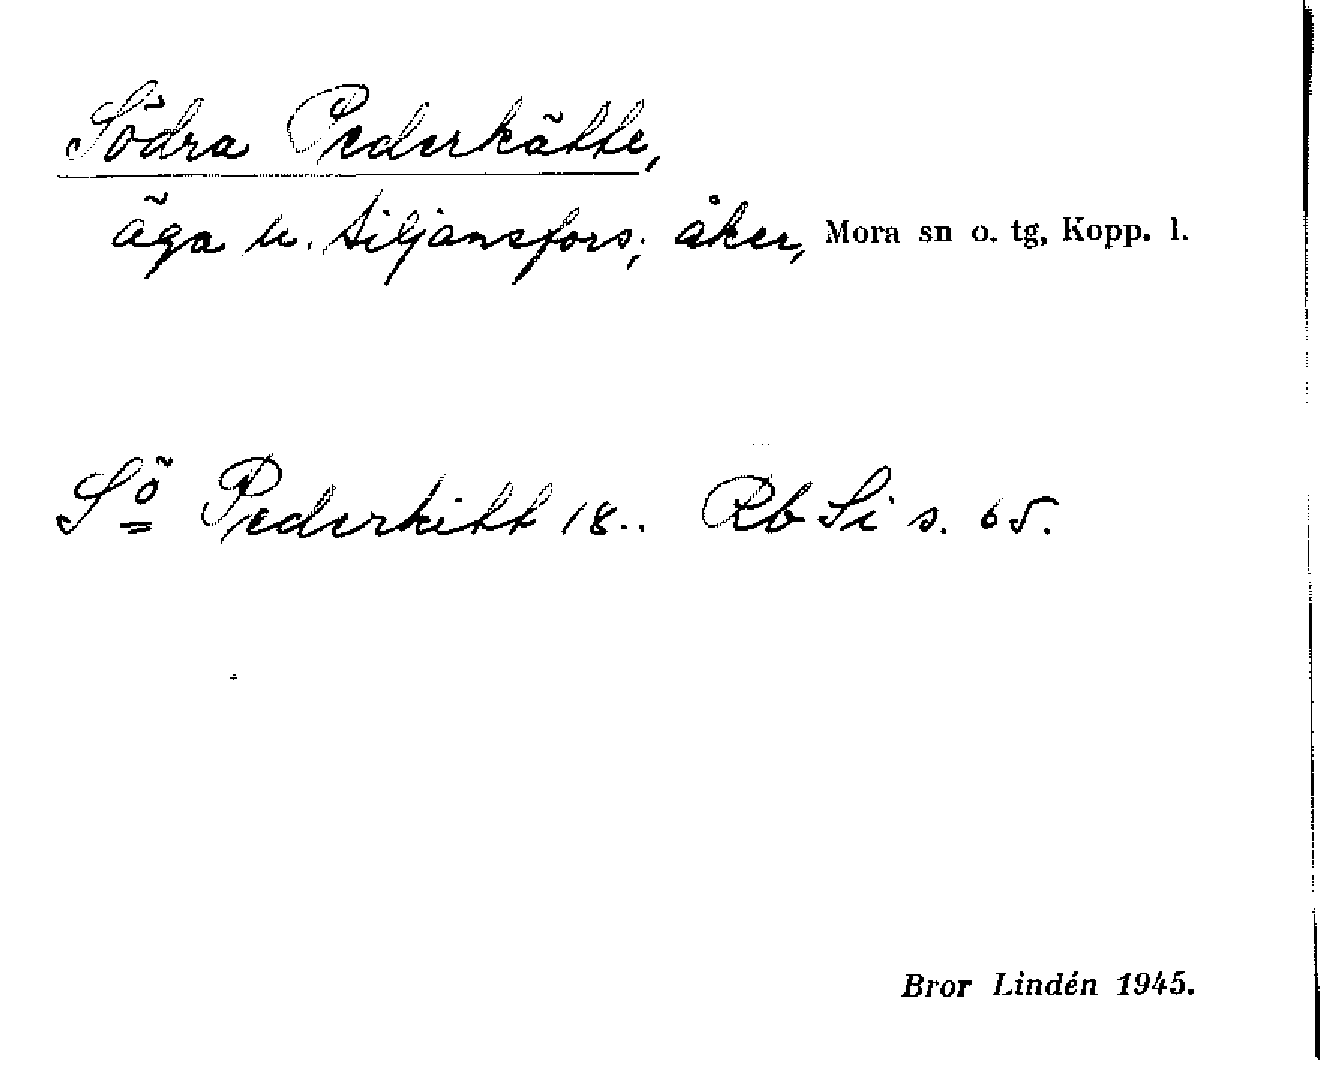 Södra Pederkätte,
äga u. Siljansfors; åker, Mora sn o. tg, Kopp. l.
Sö Pederkitt 18.. Rb Si s. 65.
Bror Lindén 1945.